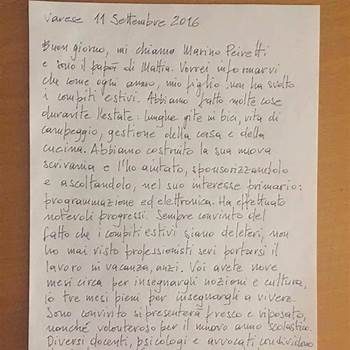 Varese 11 Settembre 2016
Buon giorno, mi chiamo Marino Peiretti
e sono il papà di Mattia. Vorrei informarvi
che come ogni anno, mio figlio non ha svolto
i compiti estivi. Abbiamo fatto molte cose
durante l'estate: lunghe gite in bici, vita di
campeggio, gestione della casa e della
cucina. Abbiamo costruito la sua nuova
scrivania e l'ho aiutato, sponsorizzandolo
e ascoltandolo, nel suo interesse primario:
programmazione ed elettronica. Ha effettuato
notevoli progressi. Sempre convinto del
fatto che i compiti estivi siano deleteri, non
ho mai visto professionisti seri portarsi il
lavoro in vacanza, anzi. Voi avete nove
mesi circa per insegnargli nozioni e cultura,
io tre mesi pieni per insegnargli a vivere.
Sono convinto si presenterà fresco e riposato,
nonché volenteroso per il nuovo anno scolastico.
Diversi docenti, psicologi e avvocati condividono